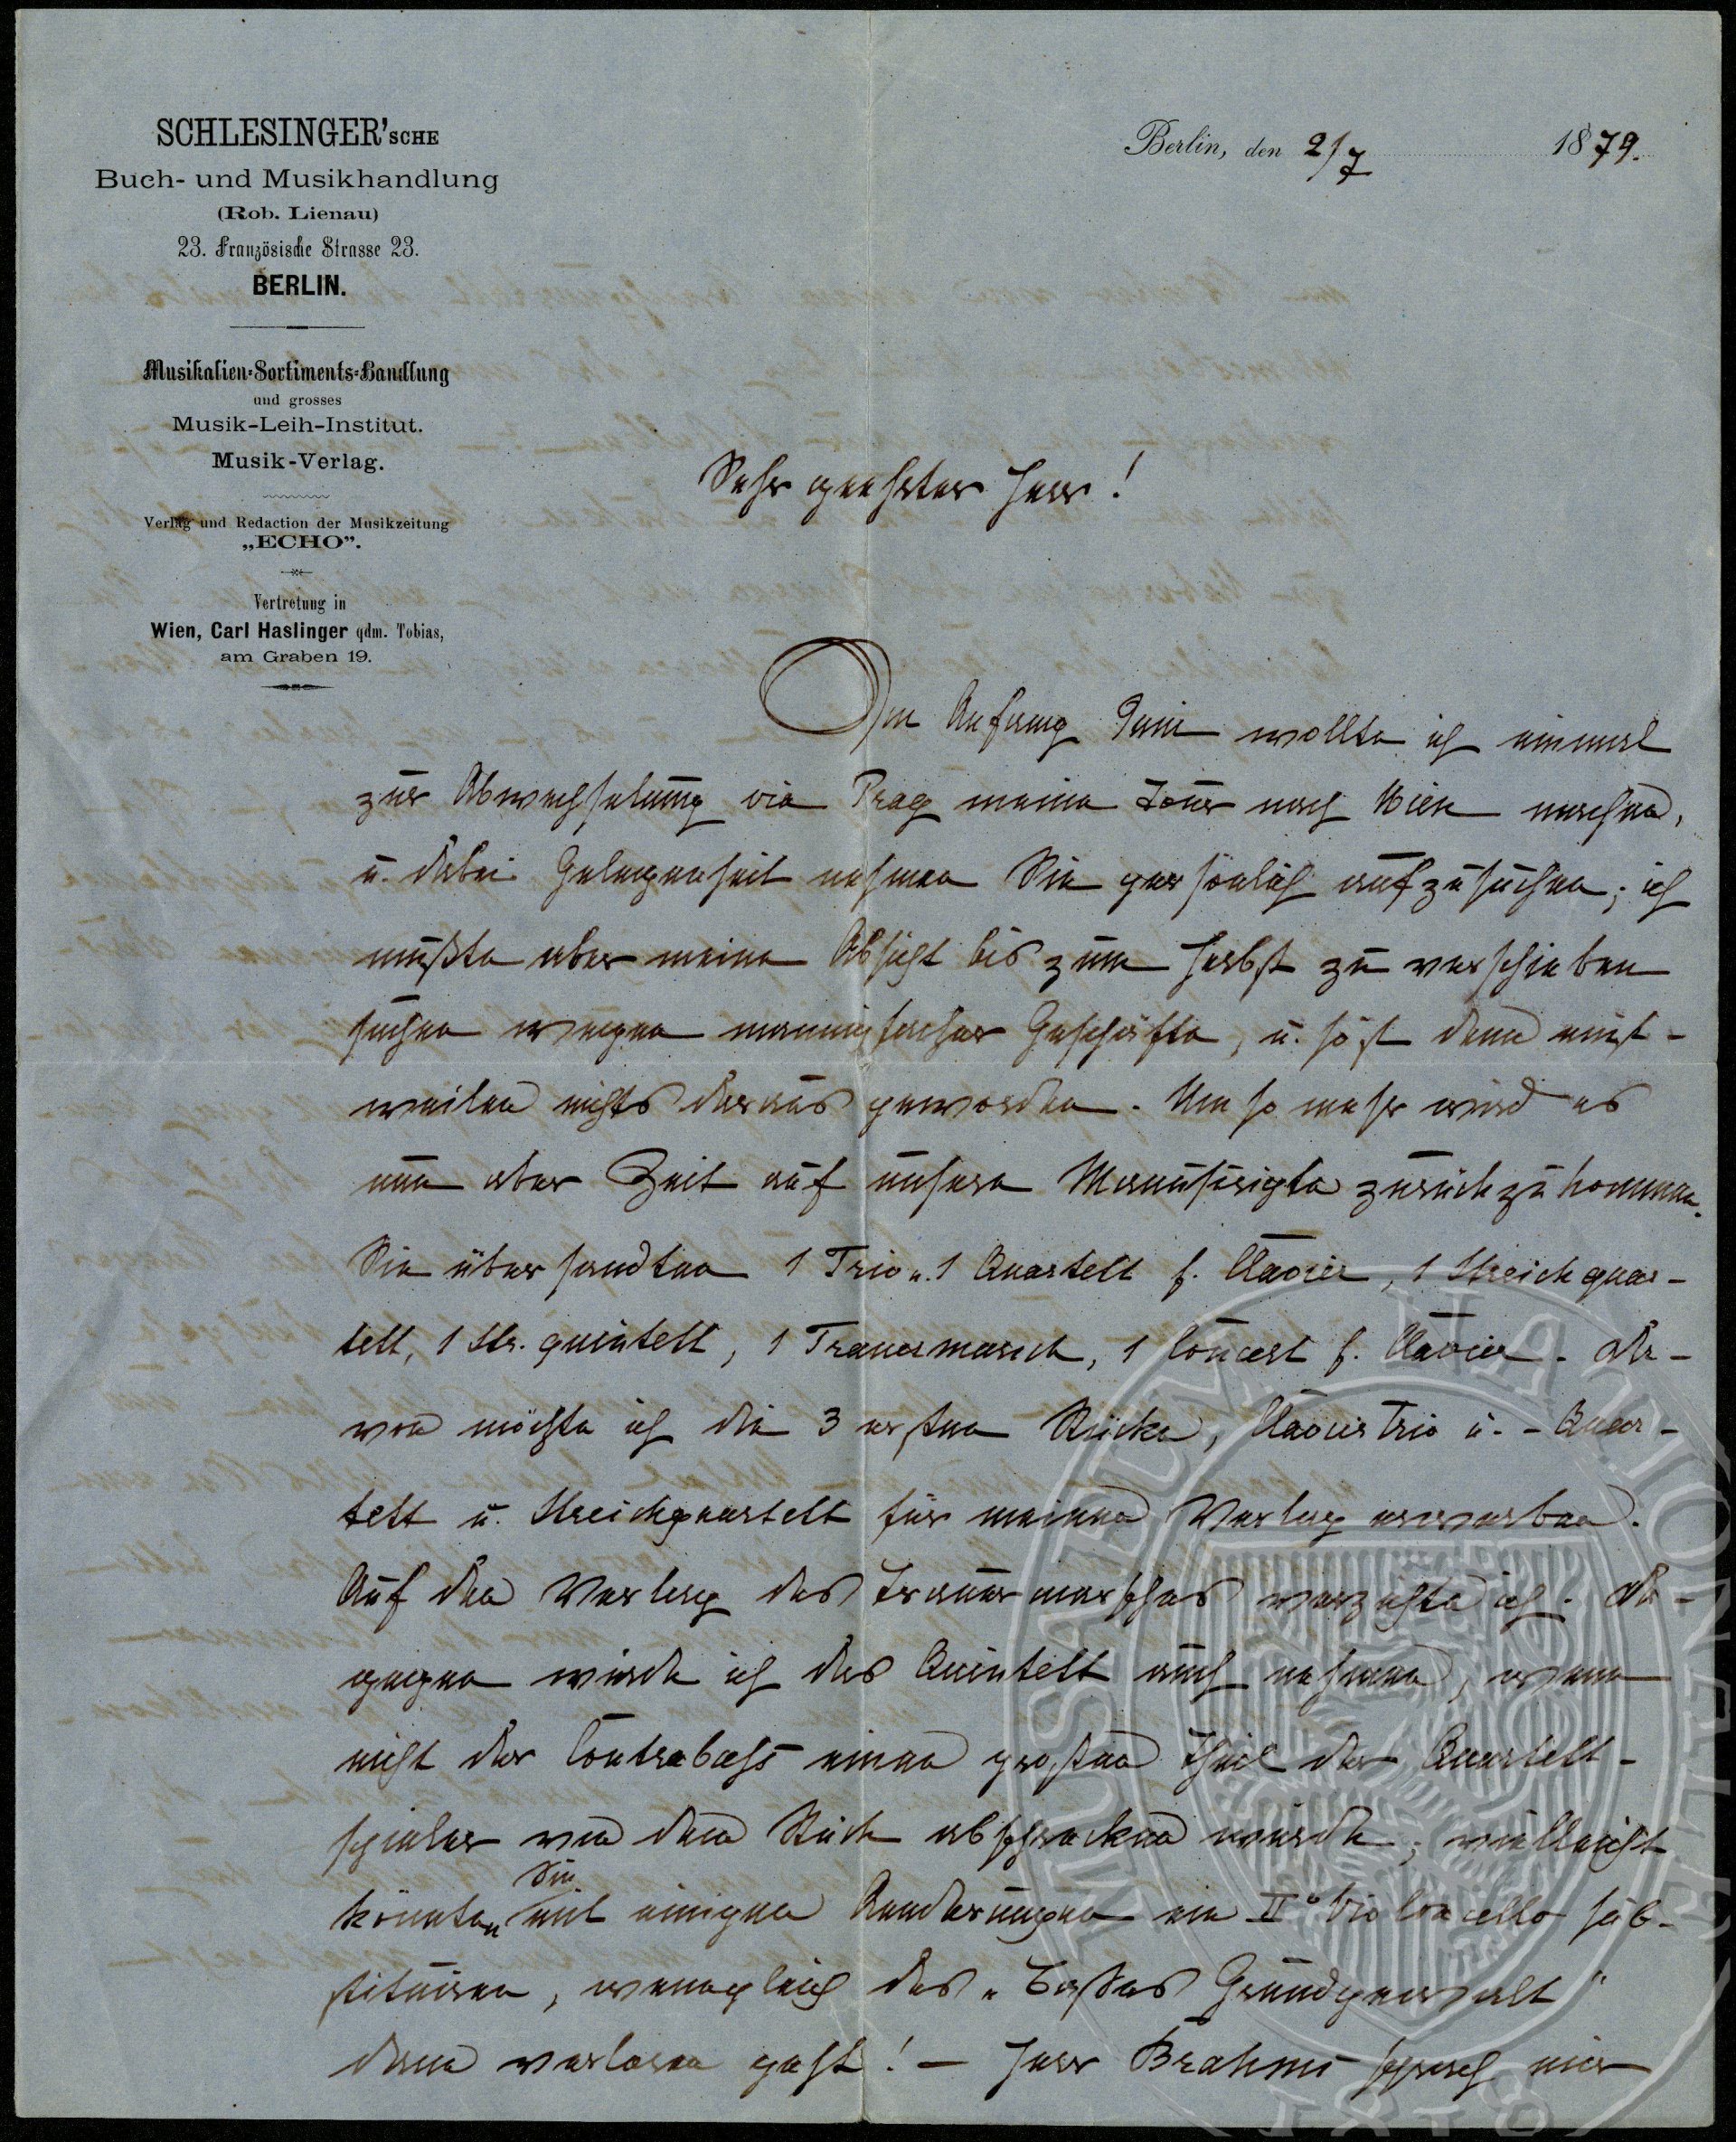 SCHLESINGER'SCHE
Buch- und Musikhandlung
(Rob. Lienau)
23. Französische Strasse 23.
BERLIN.
Musikalien-Sortiments-Handlung
und grosses
Musik-Leih-Institut.
Musik-Verlag.
Verlag und Redaction der Musikzeitung
„ECHO”.
Vertretung in
Wien, Carl Haslinger qdm. Tobias,
am Graben 19.
Berlin, den 2/7 1879.
Sehr geehrter Herr!
Im Anfang Juni wollte ich einmal
zur Abwechselung via Prag meine Tour nach Wien machen,
u. dabei Gelegenheit nehmen Sie persönlich aufzusuchen; ich
mußte aber meine Absicht bis zum Herbst zu verschieben
suchen wegen mannigfacher Geschäfte, u. so ist denn einst-
weilen nichts daraus geworden. Um so mehr wird es
nun aber Zeit auf unsere Manuscripte zurückzukommen.
Sie übersandten 1 Trio u. 1 Quartett f. Clavier, 1 Streichquar-
tett, 1 Str. quintett, 1 Trauermarsch, 1 Concert f. Clavier. Da-
von möchte ich die 3 ersten Stücke, Clavier Trio u. - Quar-
tett u. Streichquartett für meinen Verlag erwerben.
Auf den Verlag des Trauermarsches verzichte ich. Da-
gegen würde ich das Quintett auch nehmen, wenn
nicht der Contrabass einen großen Theil der Quartett-
spieler von dem Stück abschrecken würde; vielleicht
könnten Sie mit einigen Aenderungen ein IIº Violoncello sub-
stituiren, wenngleich des „Basses Grundgewalt”
dann verloren geht! — Herr Brahms sprach mir
MUSAEUM NATIONALE
1818